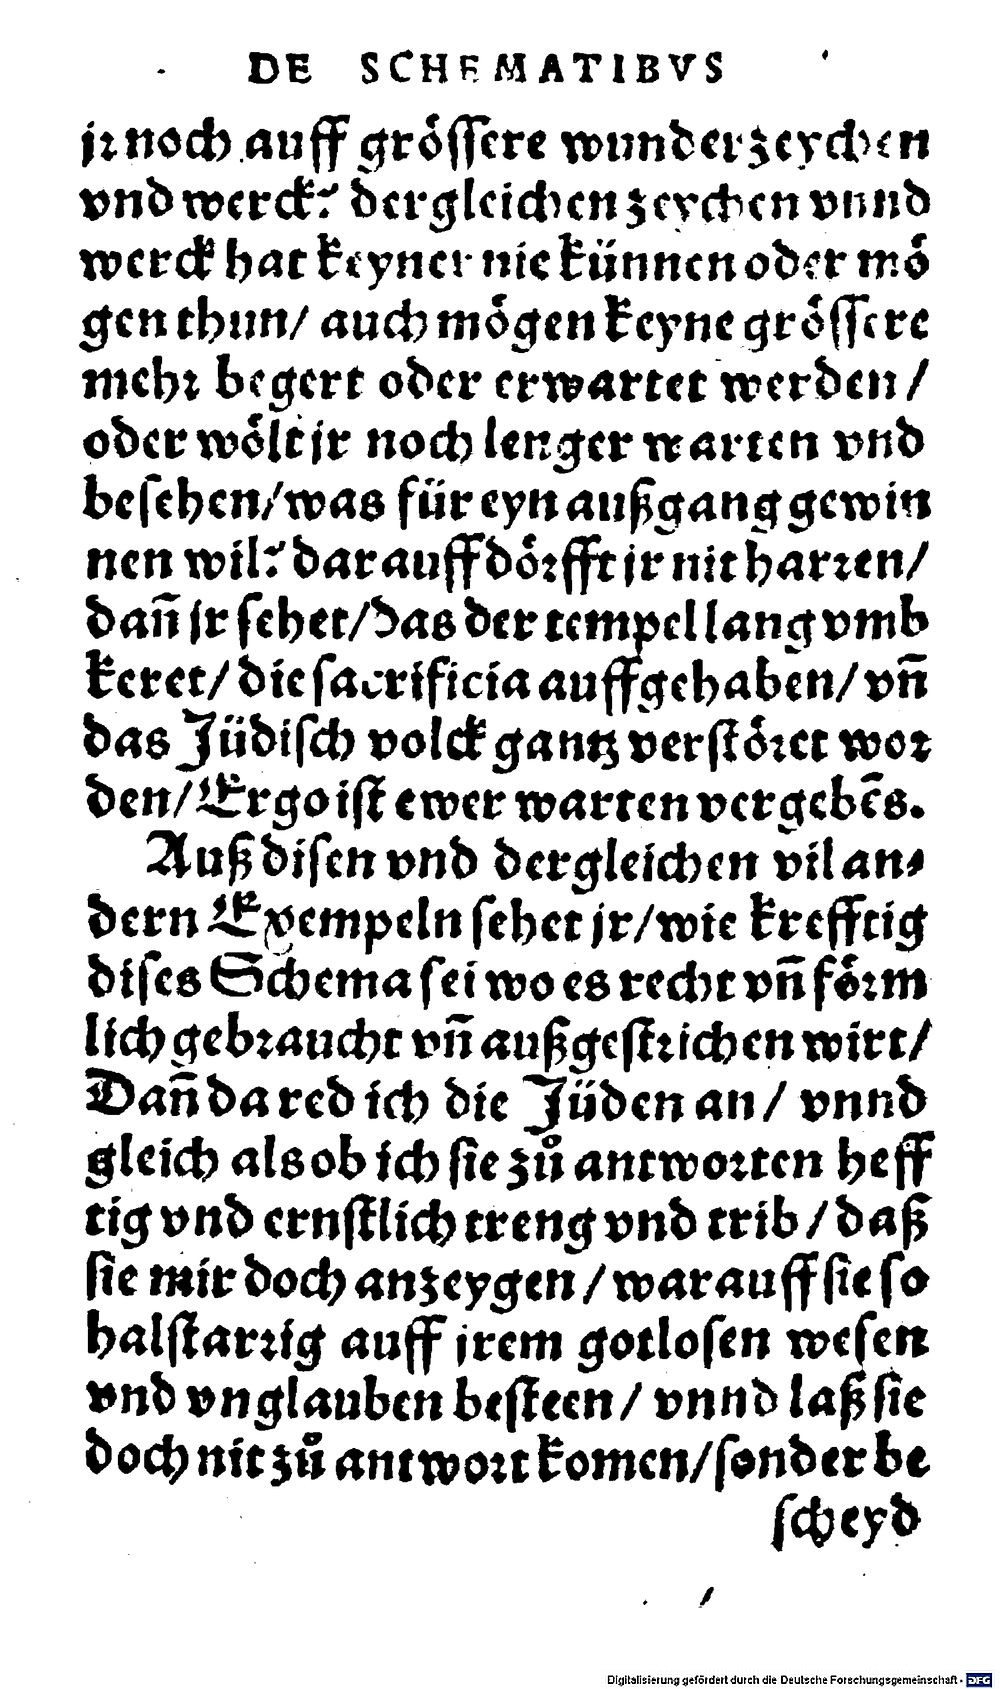 DE SCHEMATIBVS
jr noch auff grössere wunderzeychen
vnd werck? dergleichen zeychen vnnd
werck hat keyner nie künnen oder mö
gen thun/ auch mögen keyne grössere
mehr begert oder erwartet werden/
oder wölt jr noch lenger warten vnd
besehen/was für eyn außgang gewin
nen wil? darauff dörfft jr nit harren/
dañ jr sehet/das der tempel lang vmb
keret/ die sacrificia auffgehaben/ vñ
das Jüdisch volck gantz verstöret wor
den/ Ergo ist ewer warten vergebēs.
Auß disen vnd dergleichen vil an⸗
dern Exempeln sehet jr/wie krefftig
dises Schema sei wo es recht vñ förm
lich gebraucht vñ außgestrichen wirt/
Dañ da red ich die Jüden an/ vnnd
gleich als ob ich sie zů antworten heff
tig vnd ernstlich treng vnd trib/ daß
sie mir doch anzeygen/ warauff sie so
halstarrig auff jrem gotlosen wesen
vnd vnglauben besteen/ vnnd laß sie
doch nit zů antwort komen/sonder be
scheyd
Digitalisierung gefördert durch die Deutsche Forschungsgemeinschaft - DFG